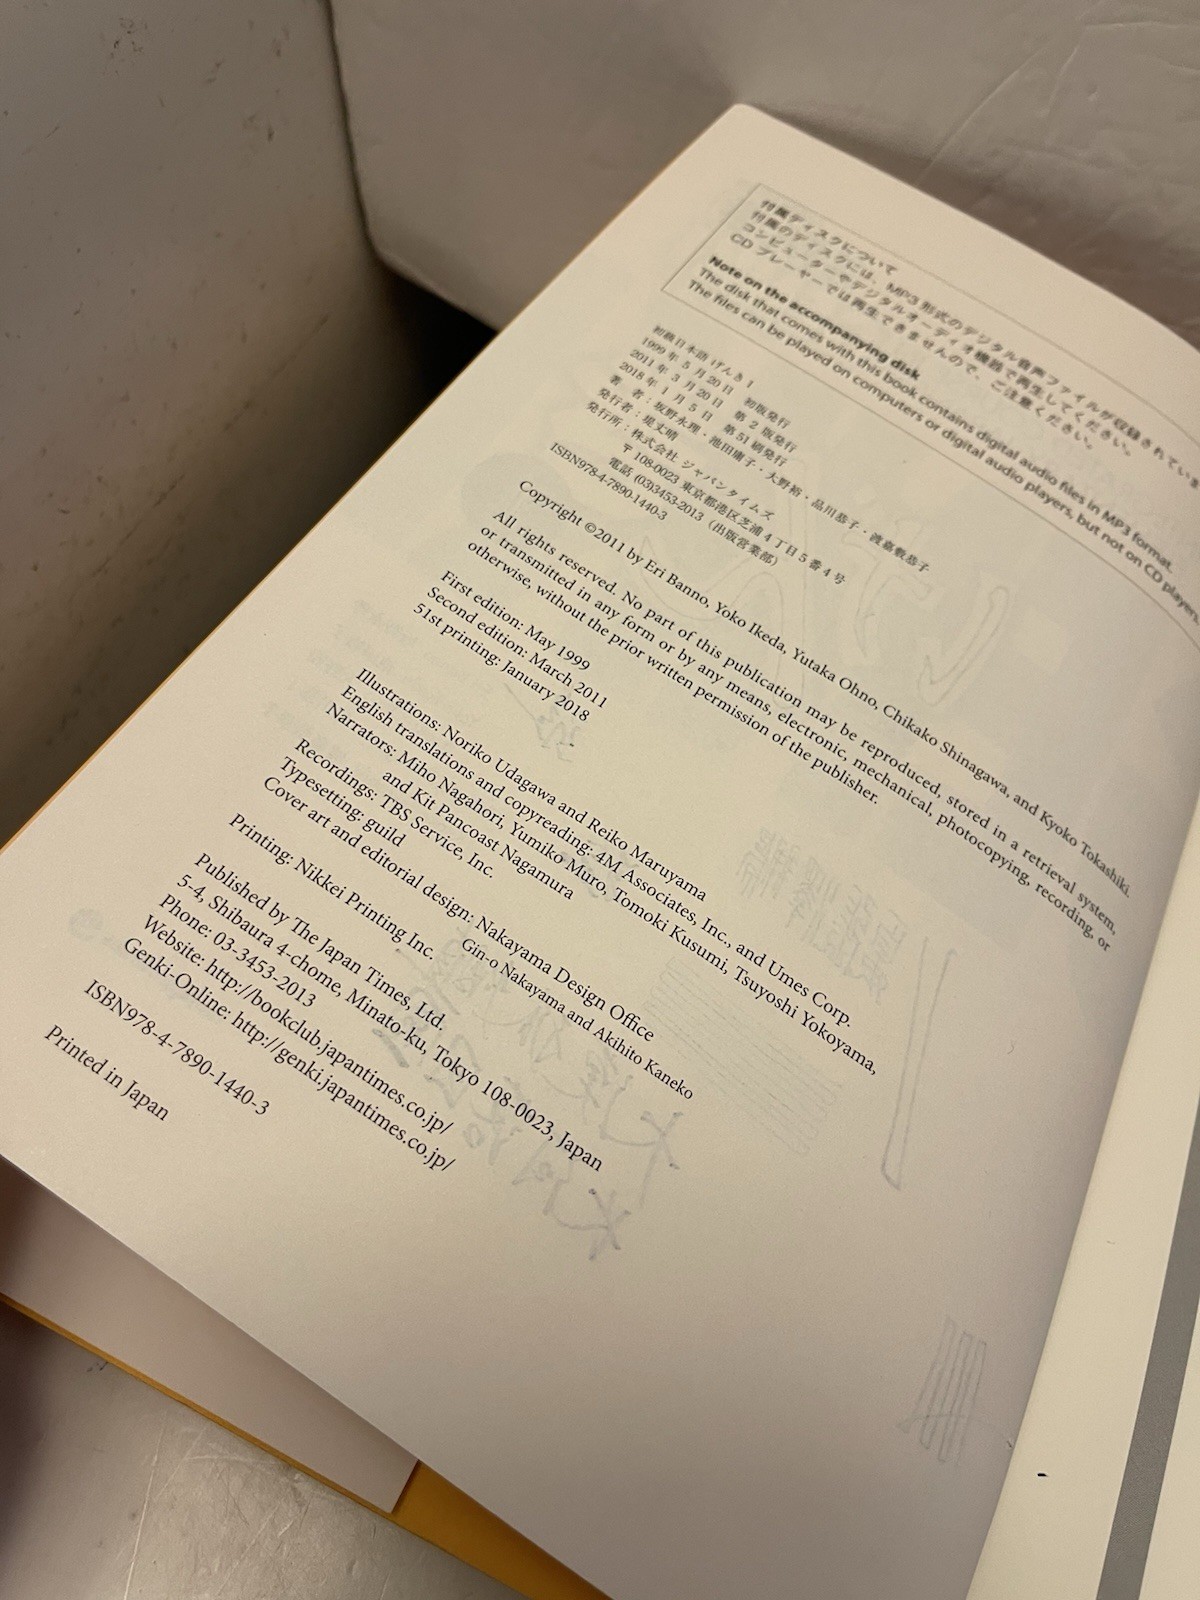 付属ディスクについて
付属のディスクには、MP3 形式のデジタル音声ファイルが収録されていま
コンピューターやデジタルオーディオ機器で再生してください。
CD プレーヤーでは再生できませんので、ご注意ください。
Note on the accompanying disk
The disk that comes with this book contains digital audio files in MP3 format.
The files can be played on computers or digital audio players, but not on CD players.
初級日本語 げんき I
1999 年 5 月 20 日 初版発行
2011 年 3 月 20 日 第 2 版発行
2018 年 1 月 5 日 第 51 刷発行
著 者:坂野永理・池田庸子・大野裕・品川恭子・渡嘉敷恭子
発行者:堤丈晴
発行所:株式会社 ジャパンタイムズ
〒108-0023 東京都港区芝浦 4 丁目 5 番 4 号
電話 (03)3453-2013(出版営業部)
ISBN978-4-7890-1440-3
Copyright ©2011 by Eri Banno, Yoko Ikeda, Yutaka Ohno, Chikako Shinagawa, and Kyoko Tokashiki.
All rights reserved. No part of this publication may be reproduced, stored in a retrieval system,
or transmitted in any form or by any means, electronic, mechanical, photocopying, recording, or
otherwise, without the prior written permission of the publisher.
First edition: May 1999
Second edition: March 2011
51st printing: January 2018
Illustrations: Noriko Udagawa and Reiko Maruyama
English translations and copyreading: 4M Associates, Inc., and Umes Corp.
Narrators: Miho Nagahori, Yumiko Muro, Tomoki Kusumi, Tsuyoshi Yokoyama,
and Kit Pancoast Nagamura
Recordings: TBS Service, Inc.
Typesetting: guild
Cover art and editorial design: Nakayama Design Office
Gin-o Nakayama and Akihito Kaneko
Printing: Nikkei Printing Inc.
Published by The Japan Times, Ltd.
5-4, Shibaura 4-chome, Minato-ku, Tokyo 108-0023, Japan
Phone: 03-3453-2013
Website: http://bookclub.japantimes.co.jp/
Genki-Online: http://genki.japantimes.co.jp/
ISBN978-4-7890-1440-3
Printed in Japan